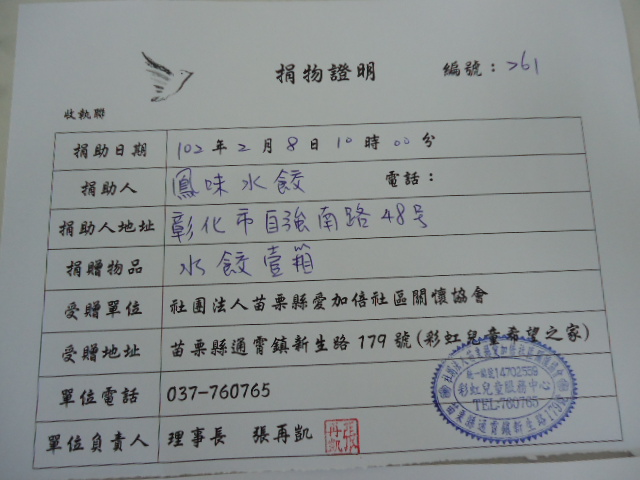 捐物證明
編號：261
收執聯
捐助日期 102年2月8日10時00分
捐助人 鳳味水餃 電話：
捐助人地址 彰化市自強南路48号
捐贈物品 水餃壹箱
受贈單位 社團法人苗栗縣愛加倍社區關懷協會
受贈地址 苗栗縣通霄鎮新生路179號(彩虹兒童希望之家)
單位電話 037-760765
單位負責人 理事長 張再凱
張再凱
社團法人苗栗縣愛加倍社區關懷協會
統一編號14702559
彩虹兒童服務中心
TEL:760765
苗栗縣通霄鎮新生路179號